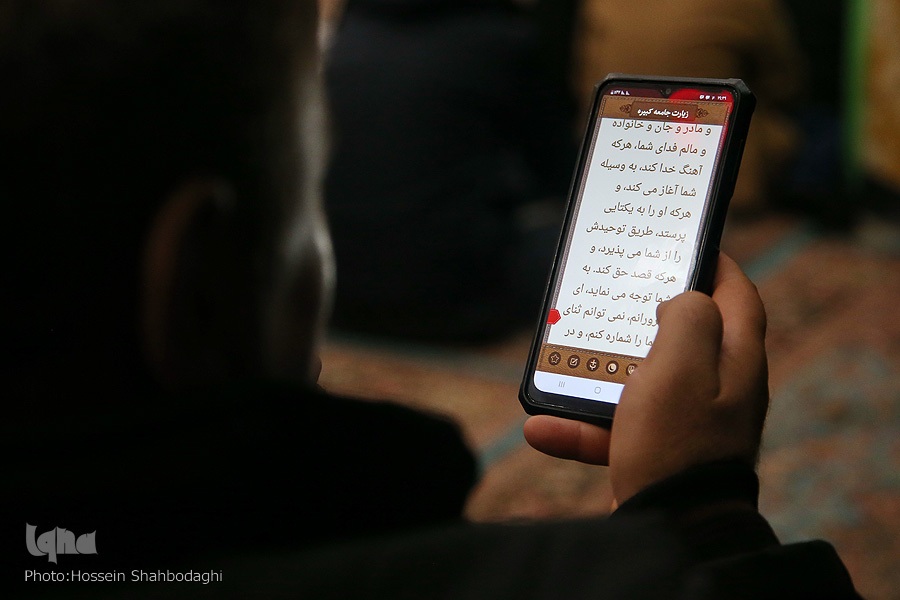 زیارت جامعه کبیره
و مادر و جان و خانواده
و مالم فدای شما، هرکه
آهنگ خدا کند، به وسیله
شما آغاز می کند، و
هرکه او را به یکتایی
پرستد، طریق توحیدش
را از شما می پذیرد، و
هرکه قصد حق کند. به
شما توجه می نماید، ای
نمی توانم ثنای
را شماره کنم، و در
iqna
Photo:Hossein Shahbodaghi